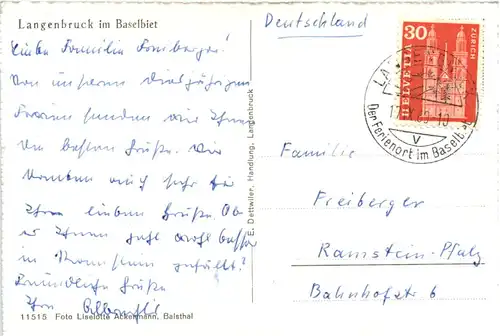 Langenbruck im Baselbiet
Deutschland
Liebe Familie
Von unserem diesjährigen
Ferien senden wir Ihnen
die besten Grüße. Wir
danken auch sehr für
Ihre lieben Grüße. Ob
es Ihnen jetzt wohl besser
in Ramstein gefällt?
Freundliche Grüße
Ihre
11515 Foto Liselotte Ackermann, Balsthal
E. Dettwiler, Handlung, Langenbruck
30
HELVETIA
ZÜRICH
Der Ferienort im Baselb
Familie
Freiberger
Ramstein-Pfalz
Bahnhofstr. 6